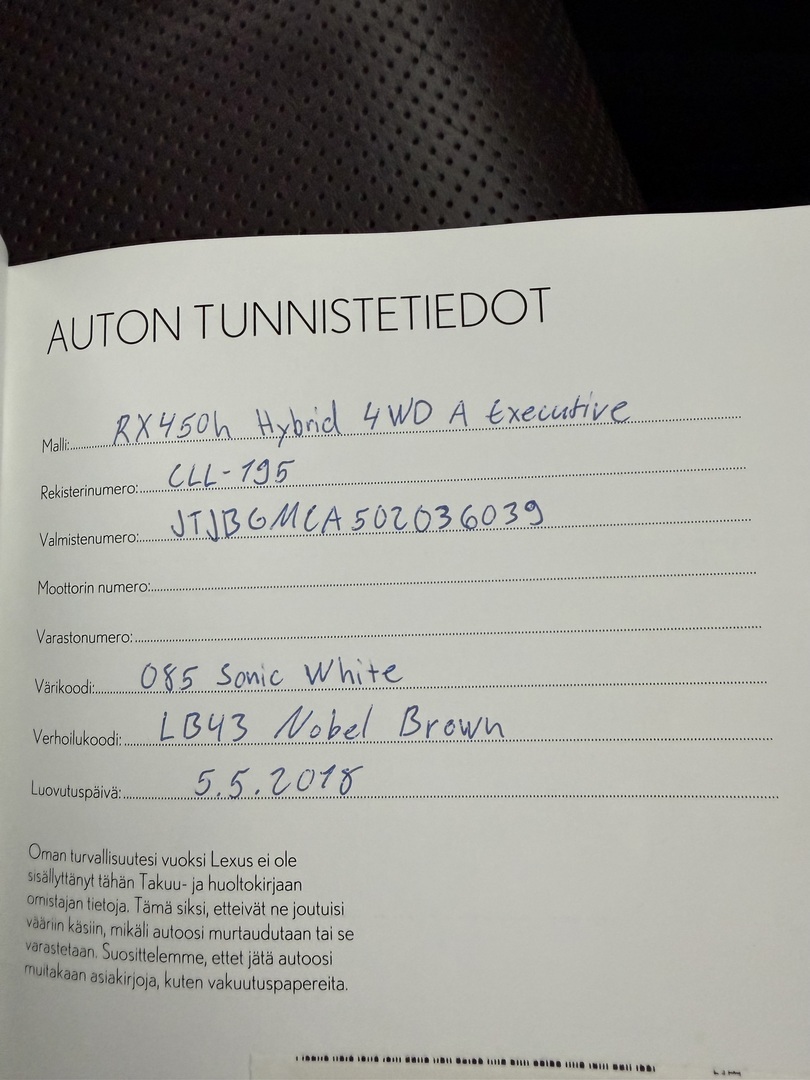 AUTON TUNNISTETIEDOT
Malli: RX450h Hybrid 4WD A Executive
Rekisterinumero: CLL-195
Valmistenumero: JTJBGMCA502036039
Moottorin numero:
Varastonumero:
Värikoodi: 085 Sonic White
Verhoilukoodi: LB43 Nobel Brown
Luovutuspäivä: 5.5.2018
Oman turvallisuutesi vuoksi Lexus ei ole
sisällyttänyt tähän Takuu- ja huoltokirjaan
omistajan tietoja. Tämä siksi, etteivät ne joutuisi
vääriin käsiin, mikäli autoosi murtaudutaan tai se
varastetaan. Suosittelemme, ettet jätä autoosi
muitakaan asiakirjoja, kuten vakuutuspapereita.